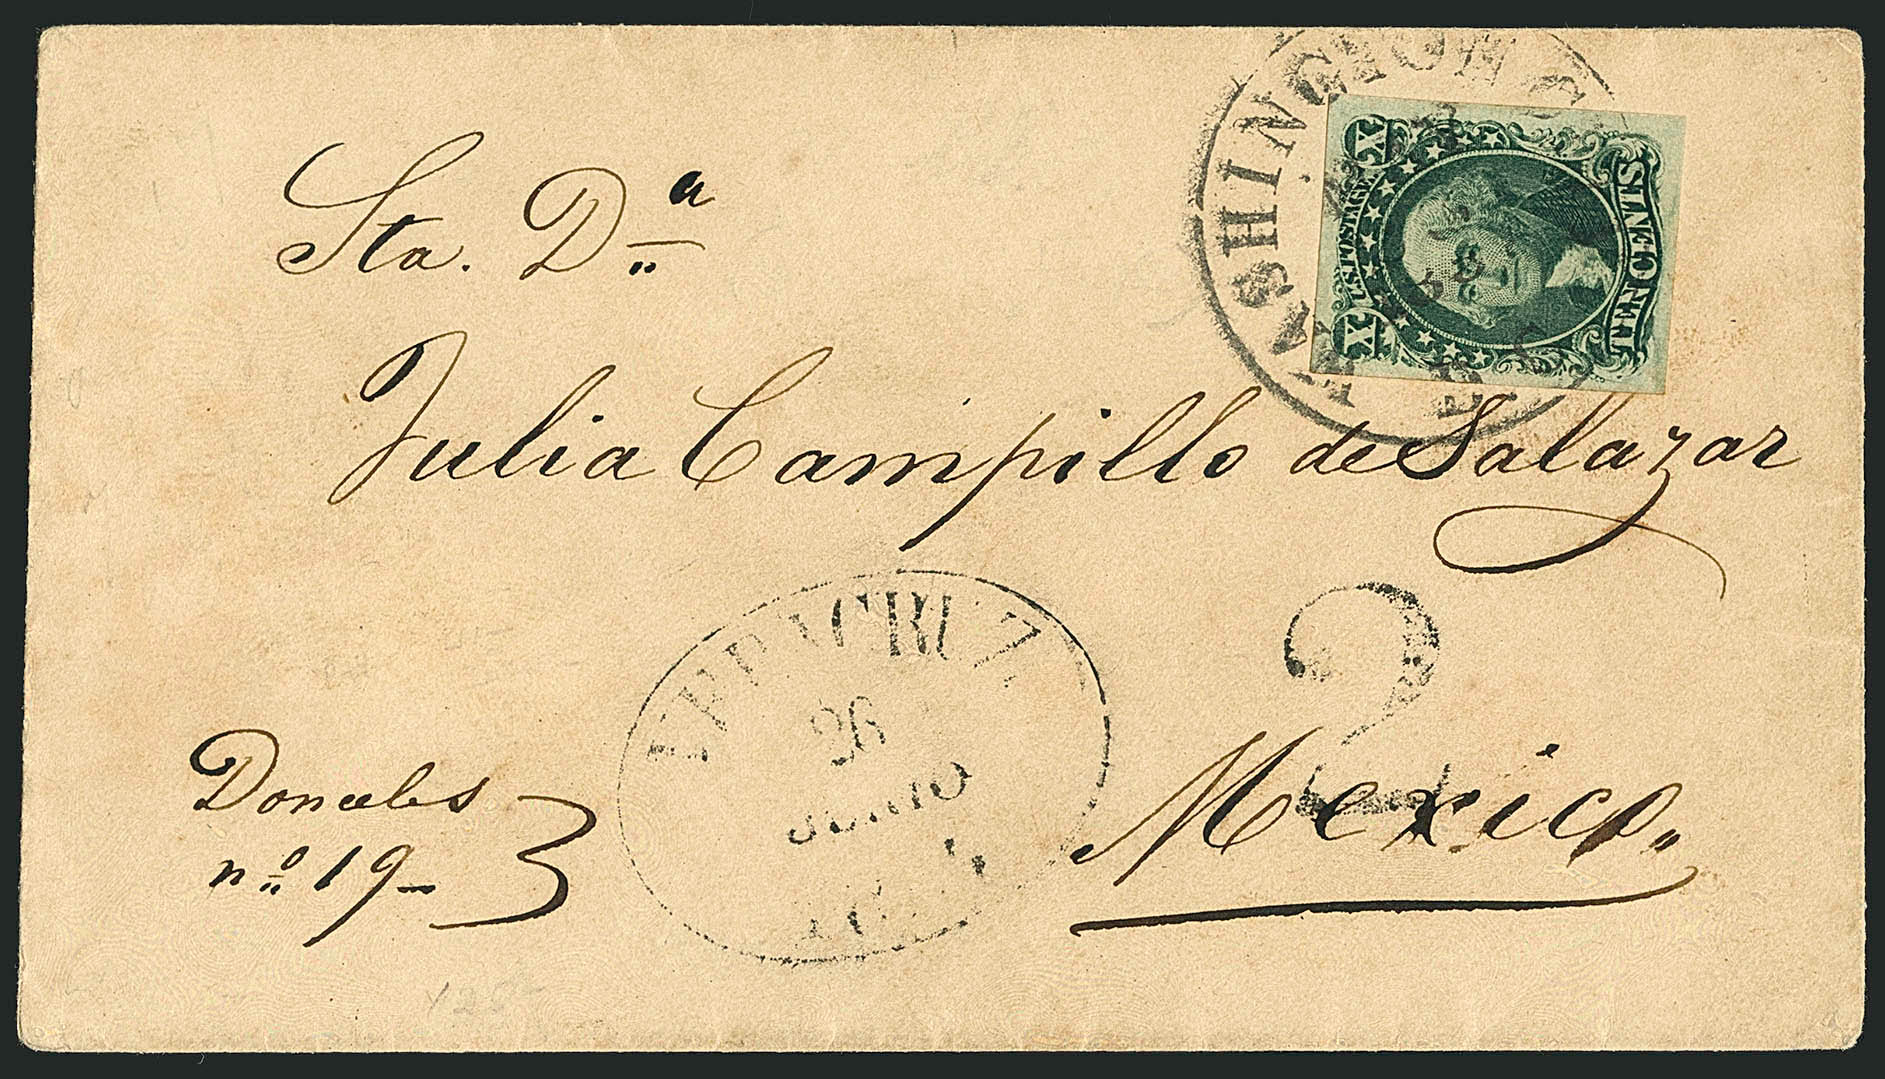 WASHINGTON
U.S. POSTAGE
X X
TEN CENTS
Sta. Dª
Julia Campillo de Salazar
VERACRUZ
26
JUNIO
2
Mexico.
Donceles
nº 19